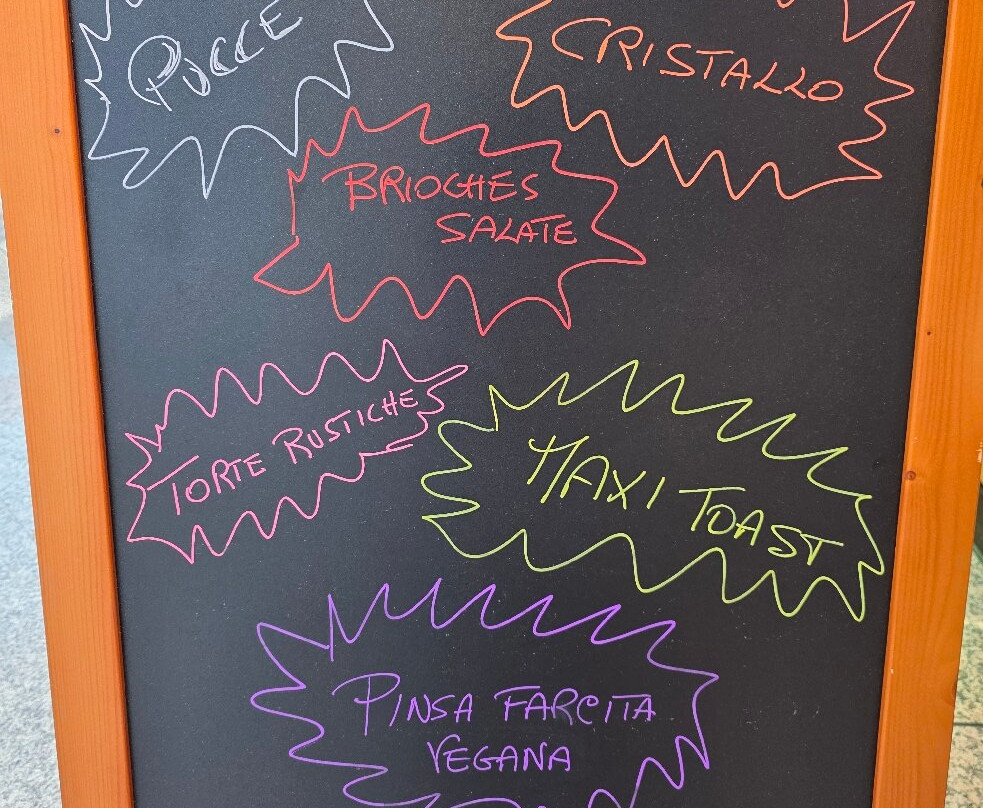 PUCCE
CRISTALLO
BRIOCHES
SALATE
TORTE RUSTICHE
MAXI TOAST
PINSA FARCITA
VEGANA